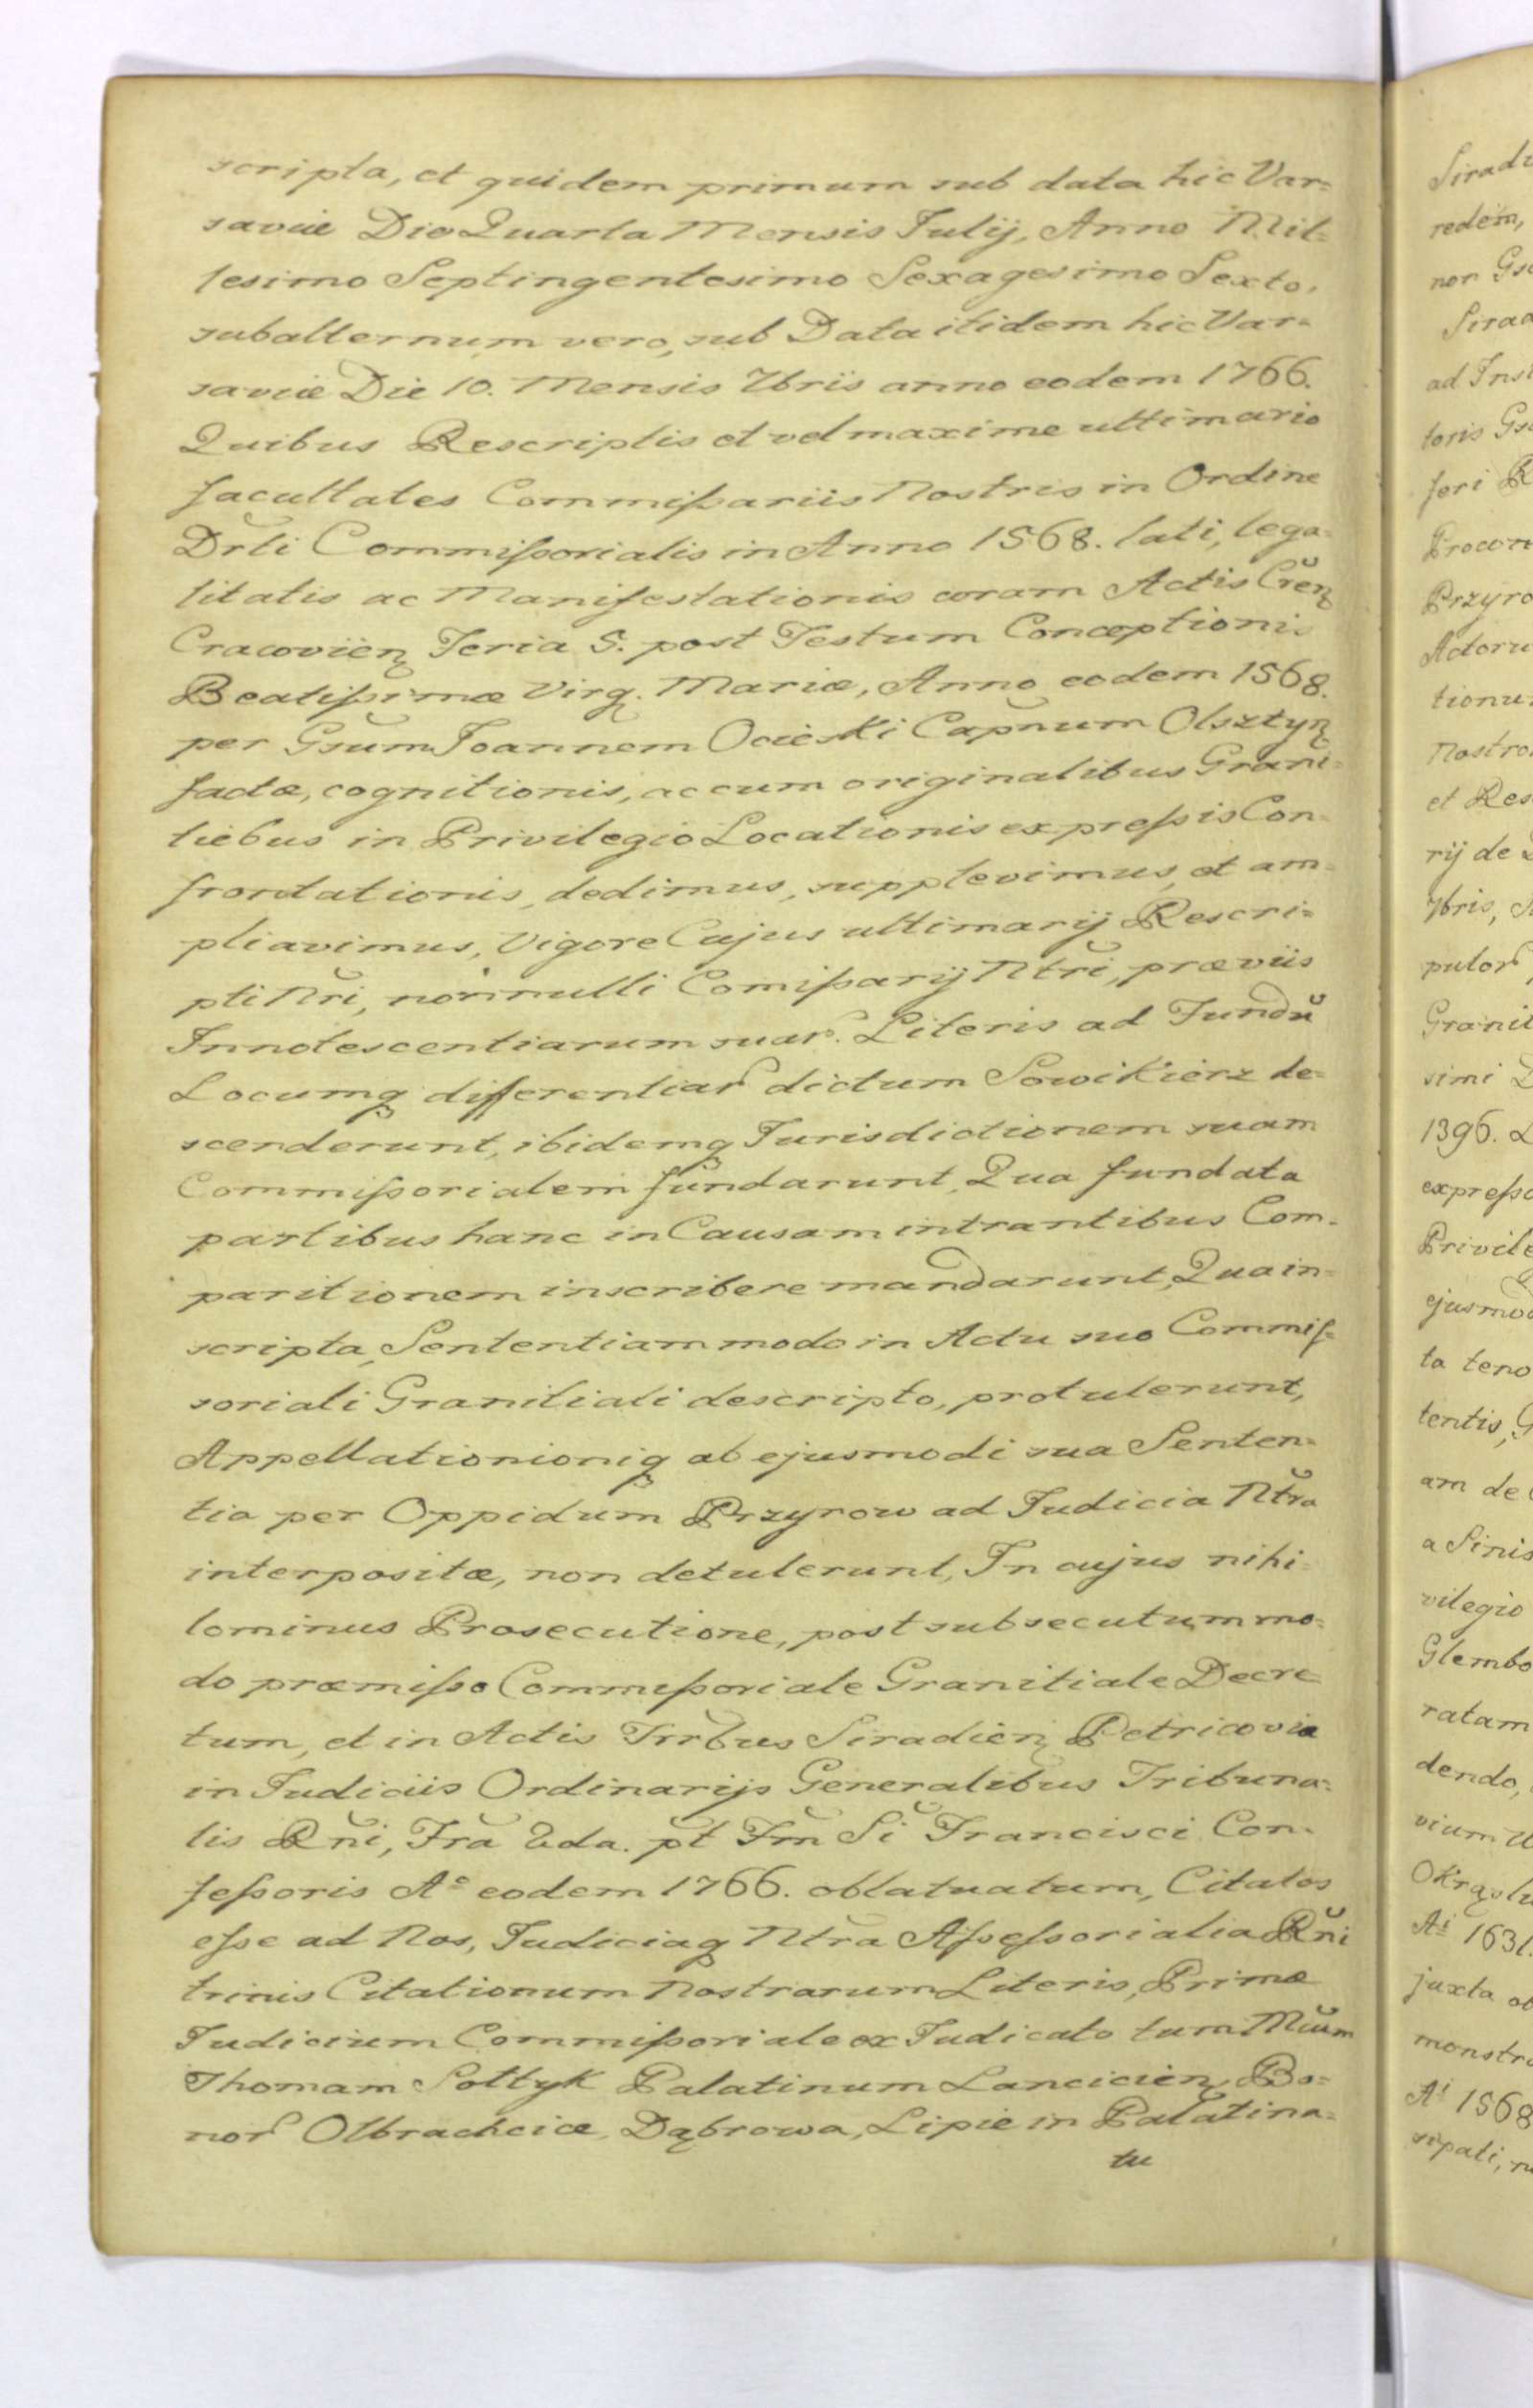 scripta, et quidem primum sub data hic Var=
saviæ Die Quarta Mensis Julij, Anno Mil=
lesimo Septingentesimo Sexagesimo Sexto,
subalternum vero, sub Data itidem hic Var=
saviæ Die 10. Mensis 7bris anno eodem 1766.
Quibus Rescriptis et vel maxime ultimario
facultates Commißariis Nostris in Ordine
Drti Commißorialis in Anno 1568. lati, lega=
litatis ac Manifestationis coram Actis Cren
Cracovien Feria 5. post Festum Conceptionis
Beatißimæ Virg. Mariæ, Anno eodem 1568.
per Gsum Joannem Ocieski Capnum Olsztyn
factæ, cognitionis, ac cum originalibus Grani=
tiebus in Privilegio Locationis expreßis Con=
frontationis, dedimus, supplevimus, et am=
pliavimus, Vigore Cujus ultimarij Rescri=
pti Nri, nonnulli Comißarij Ntri, præviis
Innotescentiarum suar. Literis ad Fundũ
Locumq differentiar dictum Sowikierz de=
scenderunt, ibidemq Jurisdictionem suam
Commißorialem fundarunt, Qua fundata
partibus hanc in Causam intrantibus Com=
paritionem inscribere mandarunt, Qua in=
scripta, Sententiam modo in Actu suo Commis=
soriali Granitiali descripto, protulerunt,
Appellationioniq ab ejusmodi sua Senten=
tia per Oppidum Przyrow ad Judicia Ntra
interpositæ, non detulerunt, In cujus nihi=
lominus Prosecutione, post subsecutum mo=
do præmißo Commißoriale Granitiale Decre=
tum, et in Actis Trrbus Siradien Petricoviæ
in Judiciis Ordinarijs Generalibus Tribuna=
lis Rni, Fra 2da. pt Fm Si Francisci Con=
feßoris Aº eodem 1766. oblatuatum, Citatos
eße ad Nos, Judiciaq Ntra Aßeßorialia Rni
trinis Citationum Nostrarum Literis, Primæ
Judicium Commißoriale ex Judicato tum Mcum
Thomam Sołtyk Palatinum Lancicien, Bo=
nor Olbrachcice, Dąbrowa, Lipie in Palatina=
tu
Siradi
redem,
nor Gs
Sirad
ad Inst
toris Gs
feri R
Procon
Przyro
Actoru
tionu
Nostro
et Res
rij de
7bris,
pulor
Granit
simi
1396.
expreßo
Privile
ejusmod
ta teno
tentis, G
am de
a Sinis
vilegio
Glembo
ratam
dendo,
vium
Okrągłi
Ai 1631.
juxta ob
monstr
Ai 1568
sipati,